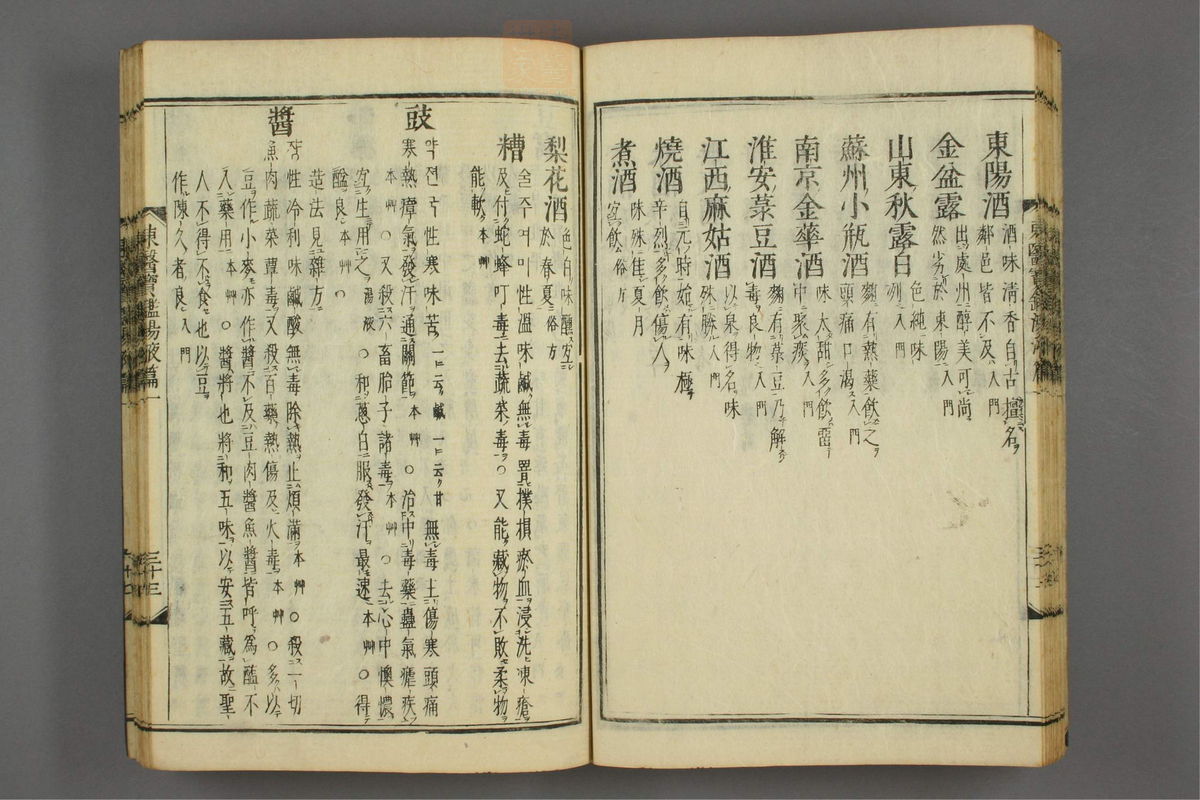 東陽酒 酒味淸香自古擅名
鄰邑皆不及 入門
金盆露 出處州醇美可尚
然劣於東陽 入門
山東秋露白 色純味
烈 入門
蘇州小瓶酒 麴有熱藥飮之
頭痛口渴 入門
南京金華酒 味太甜多飮留
中聚痰 入門
淮安菉豆酒 麴有菉豆乃解
毒良物 入門
江西麻姑酒 以泉得名味
殊勝 入門
燒酒 自元時始有味極
辛烈多飮傷人
煮酒 味殊佳夏月
宜飮 俗方
梨花酒 色白味醲宜
於春夏 俗方
糟 술주여미性溫味鹹無毒罯撲損瘀血浸洗凍瘡
及付蛇蜂叮毒去蔬菜毒○又能藏物不敗柔物
能軟 本艸
豉 약젼국性寒味苦 一云鹹 一云甘 無毒主傷寒頭痛
寒熱瘴氣發汗通關節 本艸 ○治中毒藥蠱氣瘧疾
本艸 ○又殺六畜胎子諸毒 本艸 ○去心中懊憹
宜生用之 湯液 ○和蔥白服發汗最速 本艸 ○得
醯良 本艸 ○
造法見雜方
醬 쟝性冷利味鹹酸無毒除熱止煩滿 本艸 ○殺一切
魚肉蔬菜蕈毒又殺百藥熱傷及火毒 本艸 ○多以
豆作小麥亦作醬不及豆肉醬魚醬皆呼爲醢不
入藥用 本艸 ○醬將也將和五味以安五藏故聖
人不得不食也以豆
作陳久者良 入門
東醫寶鑑湯液篇一
三十三